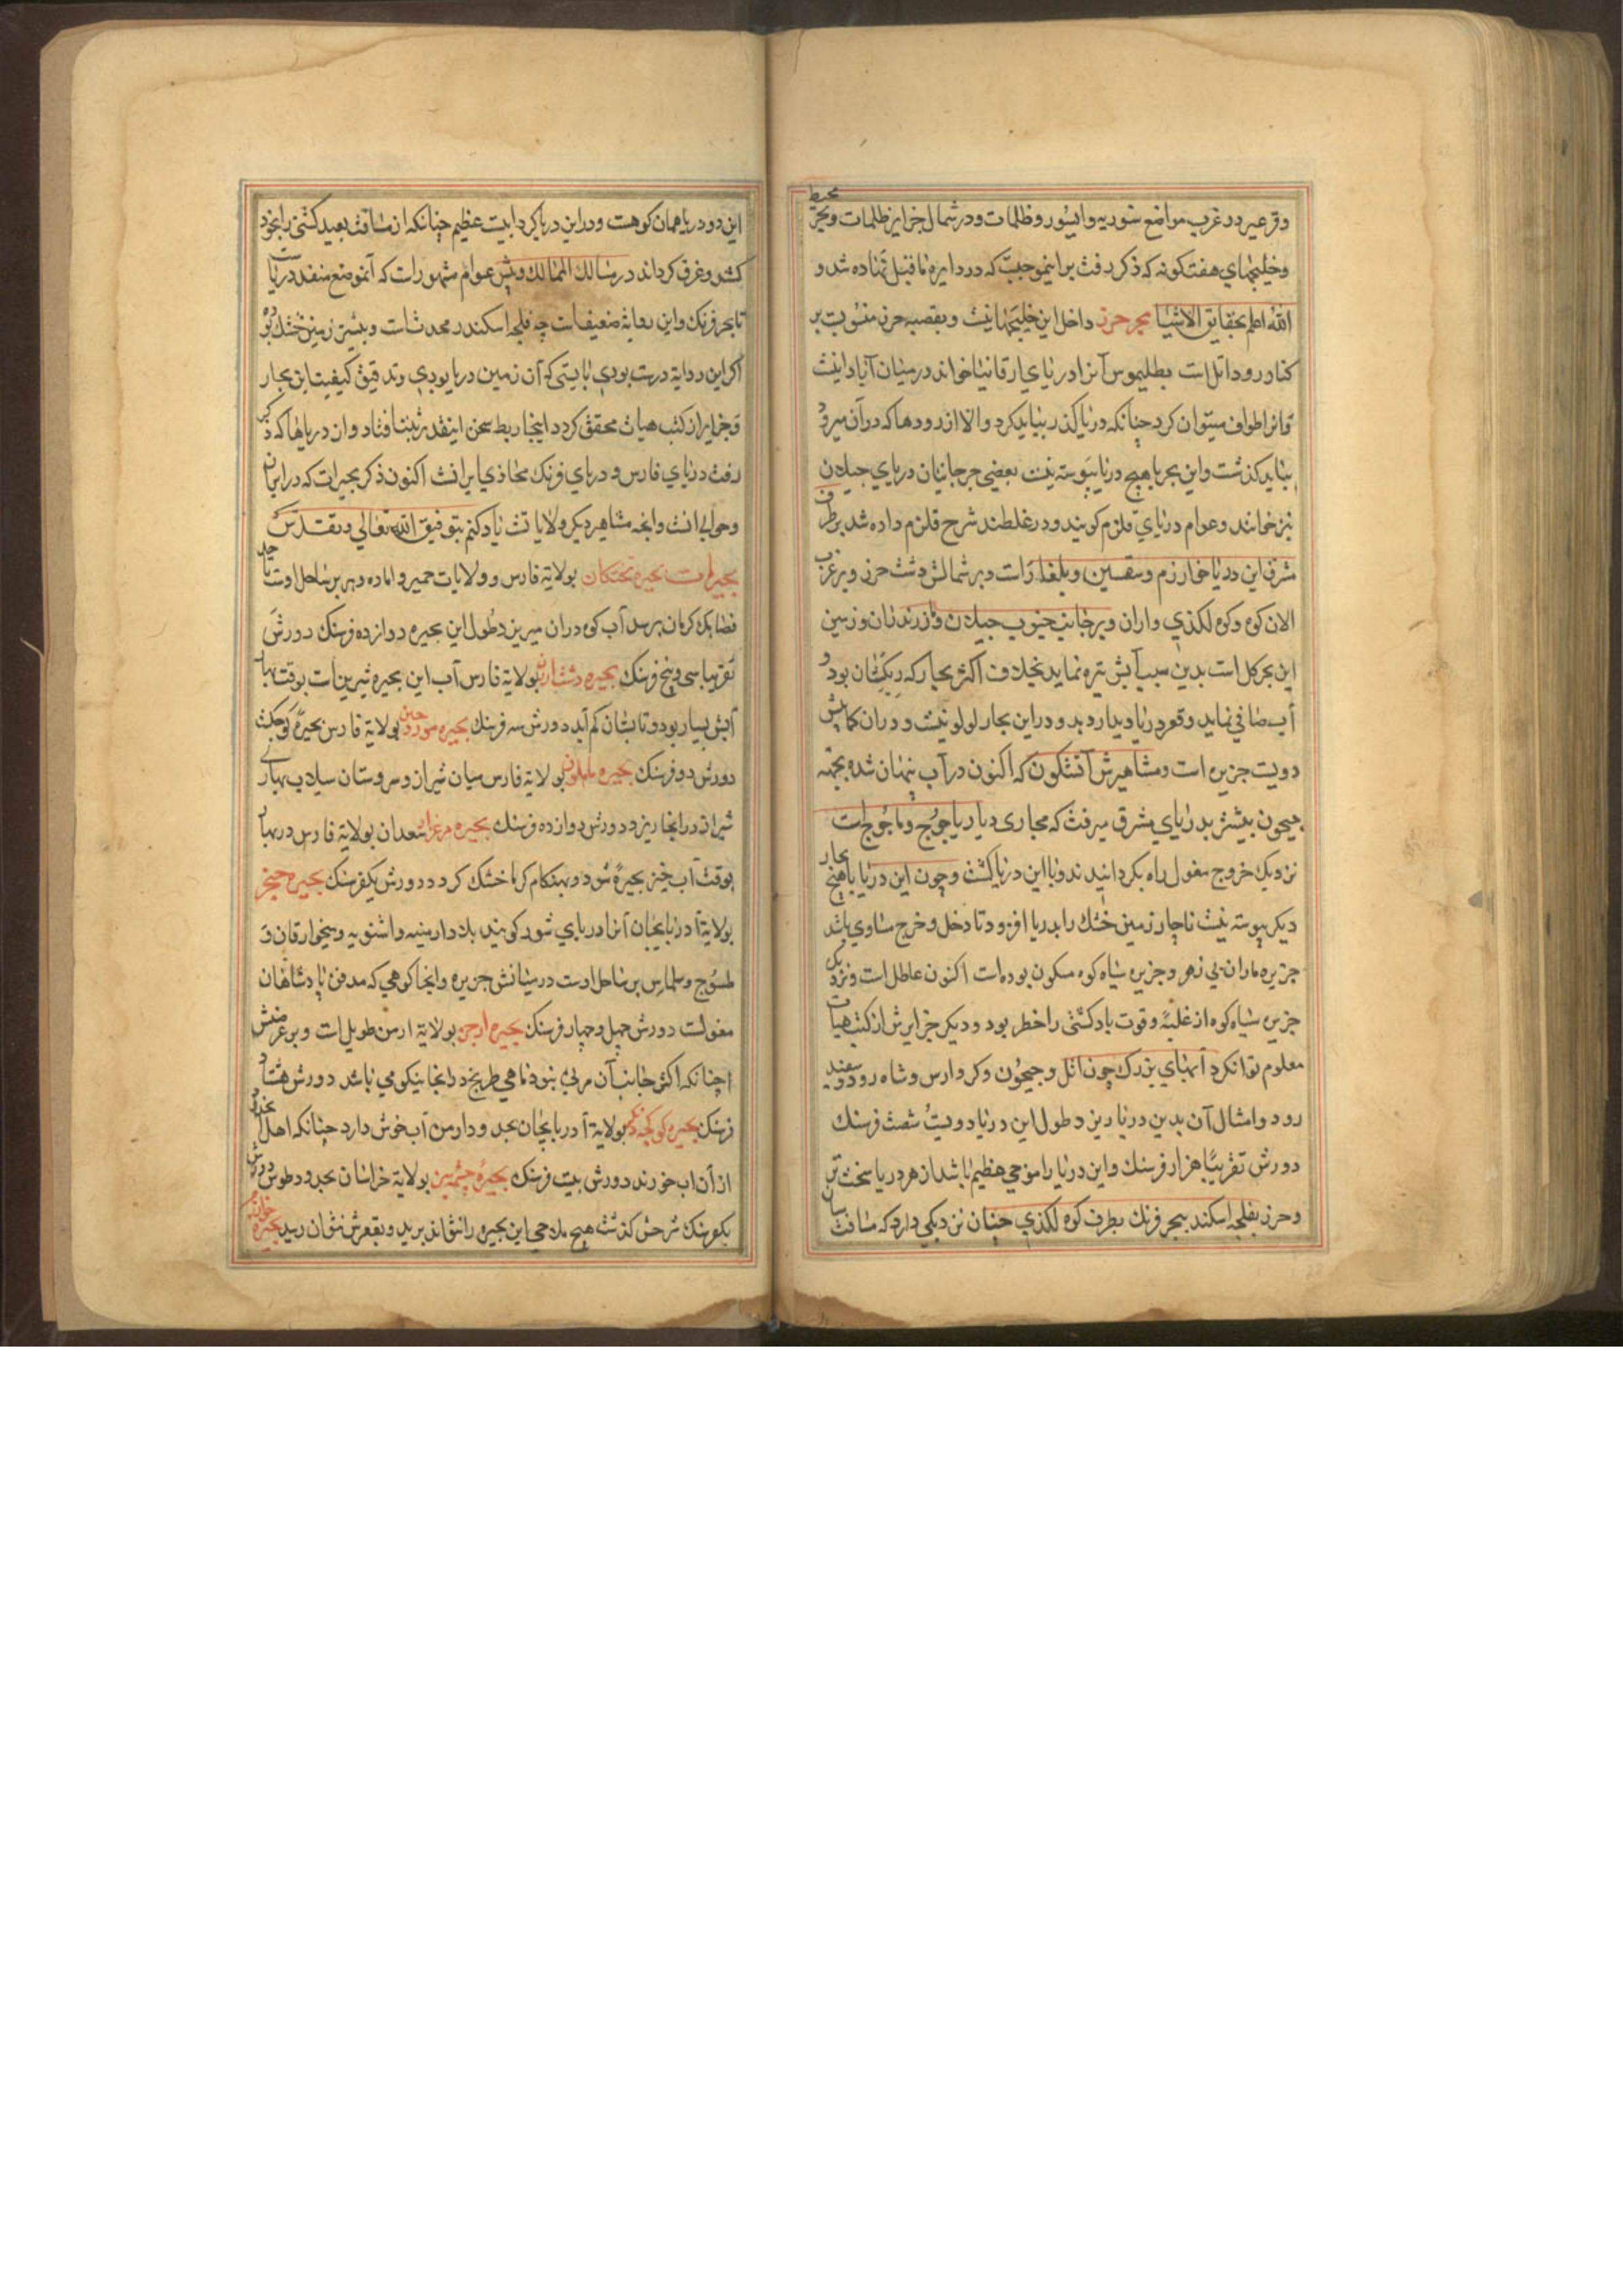 محیط
وقرعیر در غرب مواضع سوریه وایسور و ظلمات و در شمال جزایر ظلمات و بحر
وخلیجهای هفتکونه که ذکر رفت براینموجبست که در دایره ماقبل نهاده شد و
الله اعلم بحقایق الاشیا بحر خزر داخل این خلیجها نیست و بقصبه خزر منسوبست بر
کنار رود اتل است بطلیموس آنرا دریای ارقانیا خواند در میان آبادانیست
وانرا طواف میتوان کرد چنانکه دریا گذر نباید کرد والا از رودها که در آن میرود
بباید گذشت و این بحر با هیچ دریا پیوسته نیست بعضی جرجانیان دریای جیلان
نیز خوانند و عوام دریای قلزم گویند و در غلطند شرح قلزم داده شد بر طرف
شرق این دریا خوارزم و سقسین و بلغار است و بر شمالش دشت خزر و بر غرب
الان کوه و کوه لکزی و اران و بر جانب جنوب جیلان و مازندران و زمین
این بحر کل است بدین سبب آبش تیره نماید بخلاف اکثر بحار که ریکشان بود و
آب صافی نماید و قعر دریا دیدار دهد و در این بحار لولو نیست و در آن کمابیش
دویست جزیره است و مشاهیرش آبسکون که اکنون در آب پنهان شده بجهة
جیحون پیشتر بدریای مشرق میرفت که مجاری دیار یاجوج و ماجوج است
نزدیک خروج مغول راه بگردانید و با این دریا گشت و چون این دریا با هیچ بحار
دیگر پیوسته نیست ناچار زمین خشک را بدریا افزود تا دخل و خرج مساوی باشد
جزیره ماران بی زهر و جزیره سیاه کوه مسکون بوده است اکنون عاطل است و نزدیک
جزیره سیاه کوه از غلبه و قوت باد کشتی را خطر بود و دیگر جزایرش از کتب هیات
معلوم توان کرد آبهای بزرگ چون اتل و جیحون و کر و ارس و شاه رود و سفید
رود و امثال آن بدین دریا ریزد طول این دریا دویست شصت فرسنک
دورش تقریبا هزار فرسنک و این دریا را موجی عظیم باشد از هر دریا سخت تر
و خزر بفلجه اسکندر ببحر فرنک بطرف کوه لکزی چنان نزدیکی دارد که مسافت میان
این دو دریا همان کوهست و در این دریا کردابیست عظیم چنانکه از مسافت بعید کشتی را بخود
کشد و غرق کرداند در مسالک الممالک و پیش عوام مشهور است که آنموضع منفذ دریاست
تا بحر فرنک و این روایة ضعیف است چه فلجه اسکندر محدث است و پیشتر زمین خشک بوده
اگر این روایة درست بودی بایستی که آن زمین دریا بودی و تدقیق کیفیت این بحار
و جزایر از کتب هیات محقق کردد اینجا ربط سخن اینقدر نبشته افتاد و از دریاها که ذکر
رفت دریای فارس و دریای فرنک محاذی ایرانست اکنون ذکر بحیرات که در ایران
و حوالی انست و انچه مشاهیر دیگر ولایاتست یاد کنم بتوفیق الله تعالی و تقدس
بحیرات بحیره بختکان بولایة فارس و ولایات جمیر و اماده و نیریز بر ساحل اوست تا حد
قصابک کرمان برسد آب کر در ان میریزد طول این بحیره دوازده فرسنک دورش
تقریبا سی و پنج فرسنک بحیره دشت ارژن بولایة فارس آب این بحیره شیرینست بوقت بهار
آبش بسیار بود و تابستان کم آید دورش سه فرسنک بحیره مور جین بولایة فارس بحیرۀ کوچکست
دورش دو فرسنک بحیره ماهلویه بولایة فارس میان شیراز و سروستان سیلاب بهاری
شیراز در انجا ریزد دورش دوازده فرسنک بحیره مرغزار سعدان بولایة فارس در بهار
بوقت آب خیز بحیرۀ شود و بهنکام کرما خشک کردد دورش یکفرسنک بحیره چیچز
بولایة آدربایجان آنرا دریای شور کویند بلاد ارمیه و اشنویه و دهخوارقان و
طسوج و سلماس بر ساحل اوست در میانش جزیره و انجا کوهی که مدفن پادشاهان
مغولست دورش چهل و چهار فرسنک بحیره ارجن بولایة ارمن طویل است و بر عرضش
چنانکه اکثر جانب آن مریی نبود ماهی طریخ در انجا نیکو می باشد دورش هشتاد
فرسنک بحیره کوکجه تنکز بولایة آدربایجان بحدود ارمن آب خوش دارد چنانکه اهل آنحدود
از آن اب خورند دورش بیست فرسنک بحیرۀ چشمه سبز بولایة خراسان بحدود طوس دورش
یکفرسنک نزحش گذشت هیچ ملاحی این بحیره را نتواند برید و بقعرش نتوان رسید بحیره خوانند